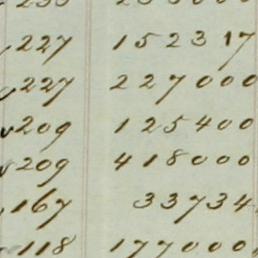 227 152317
227 227000
209 125400
209 418000
167 33734
118 177000